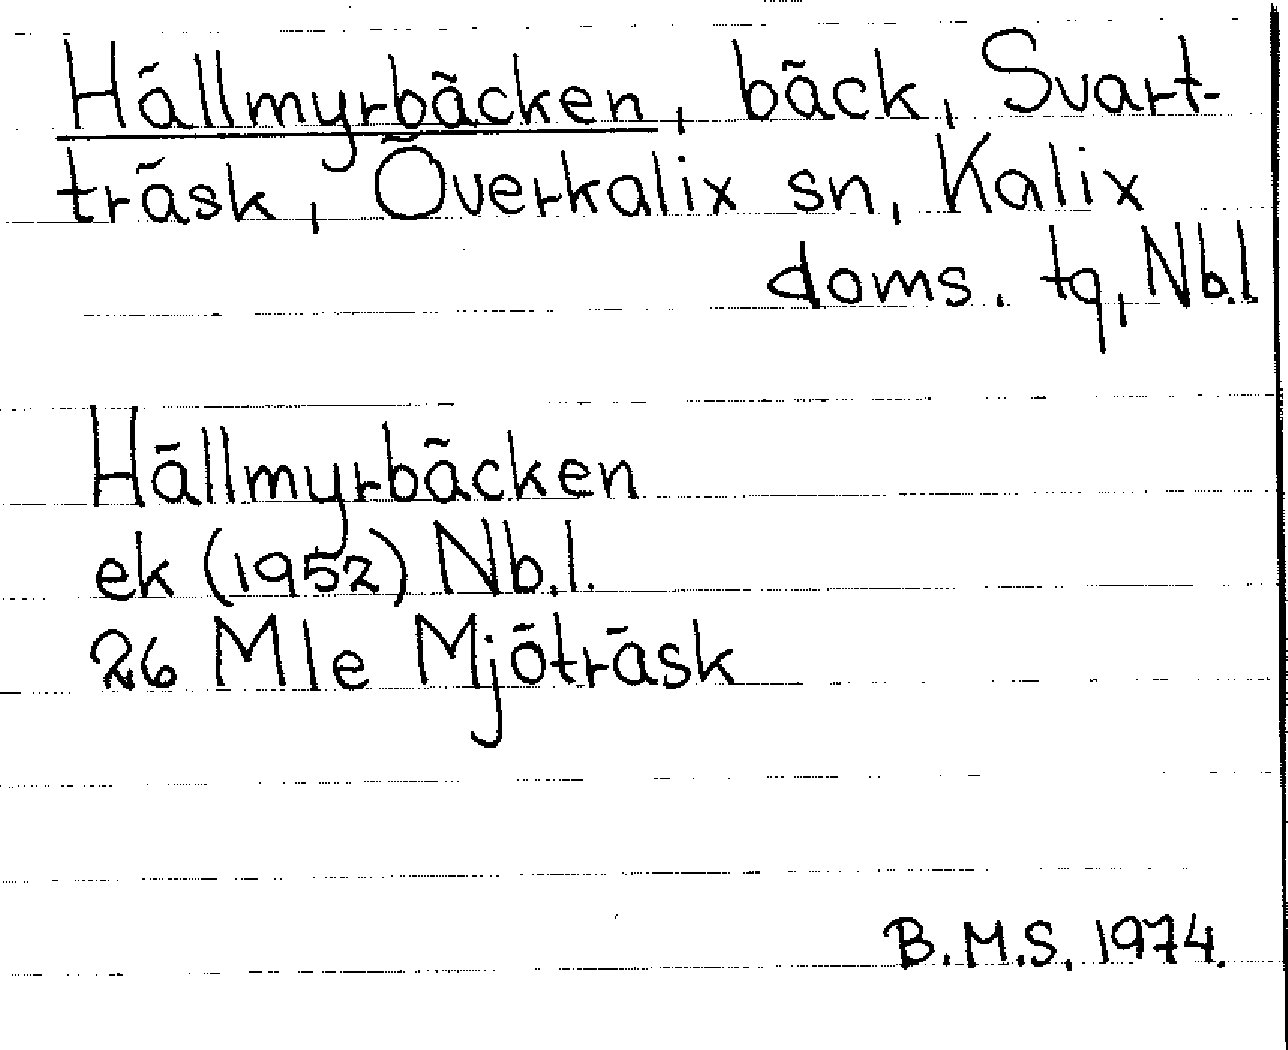 Hällmyrbäcken, bäck, Svart-
träsk, Överkalix sn, Kalix
doms. tq, Nb.l
Hällmyrbäcken
ek (1952) Nb.l.
26 Mle Mjöträsk
B.M.S. 1974.